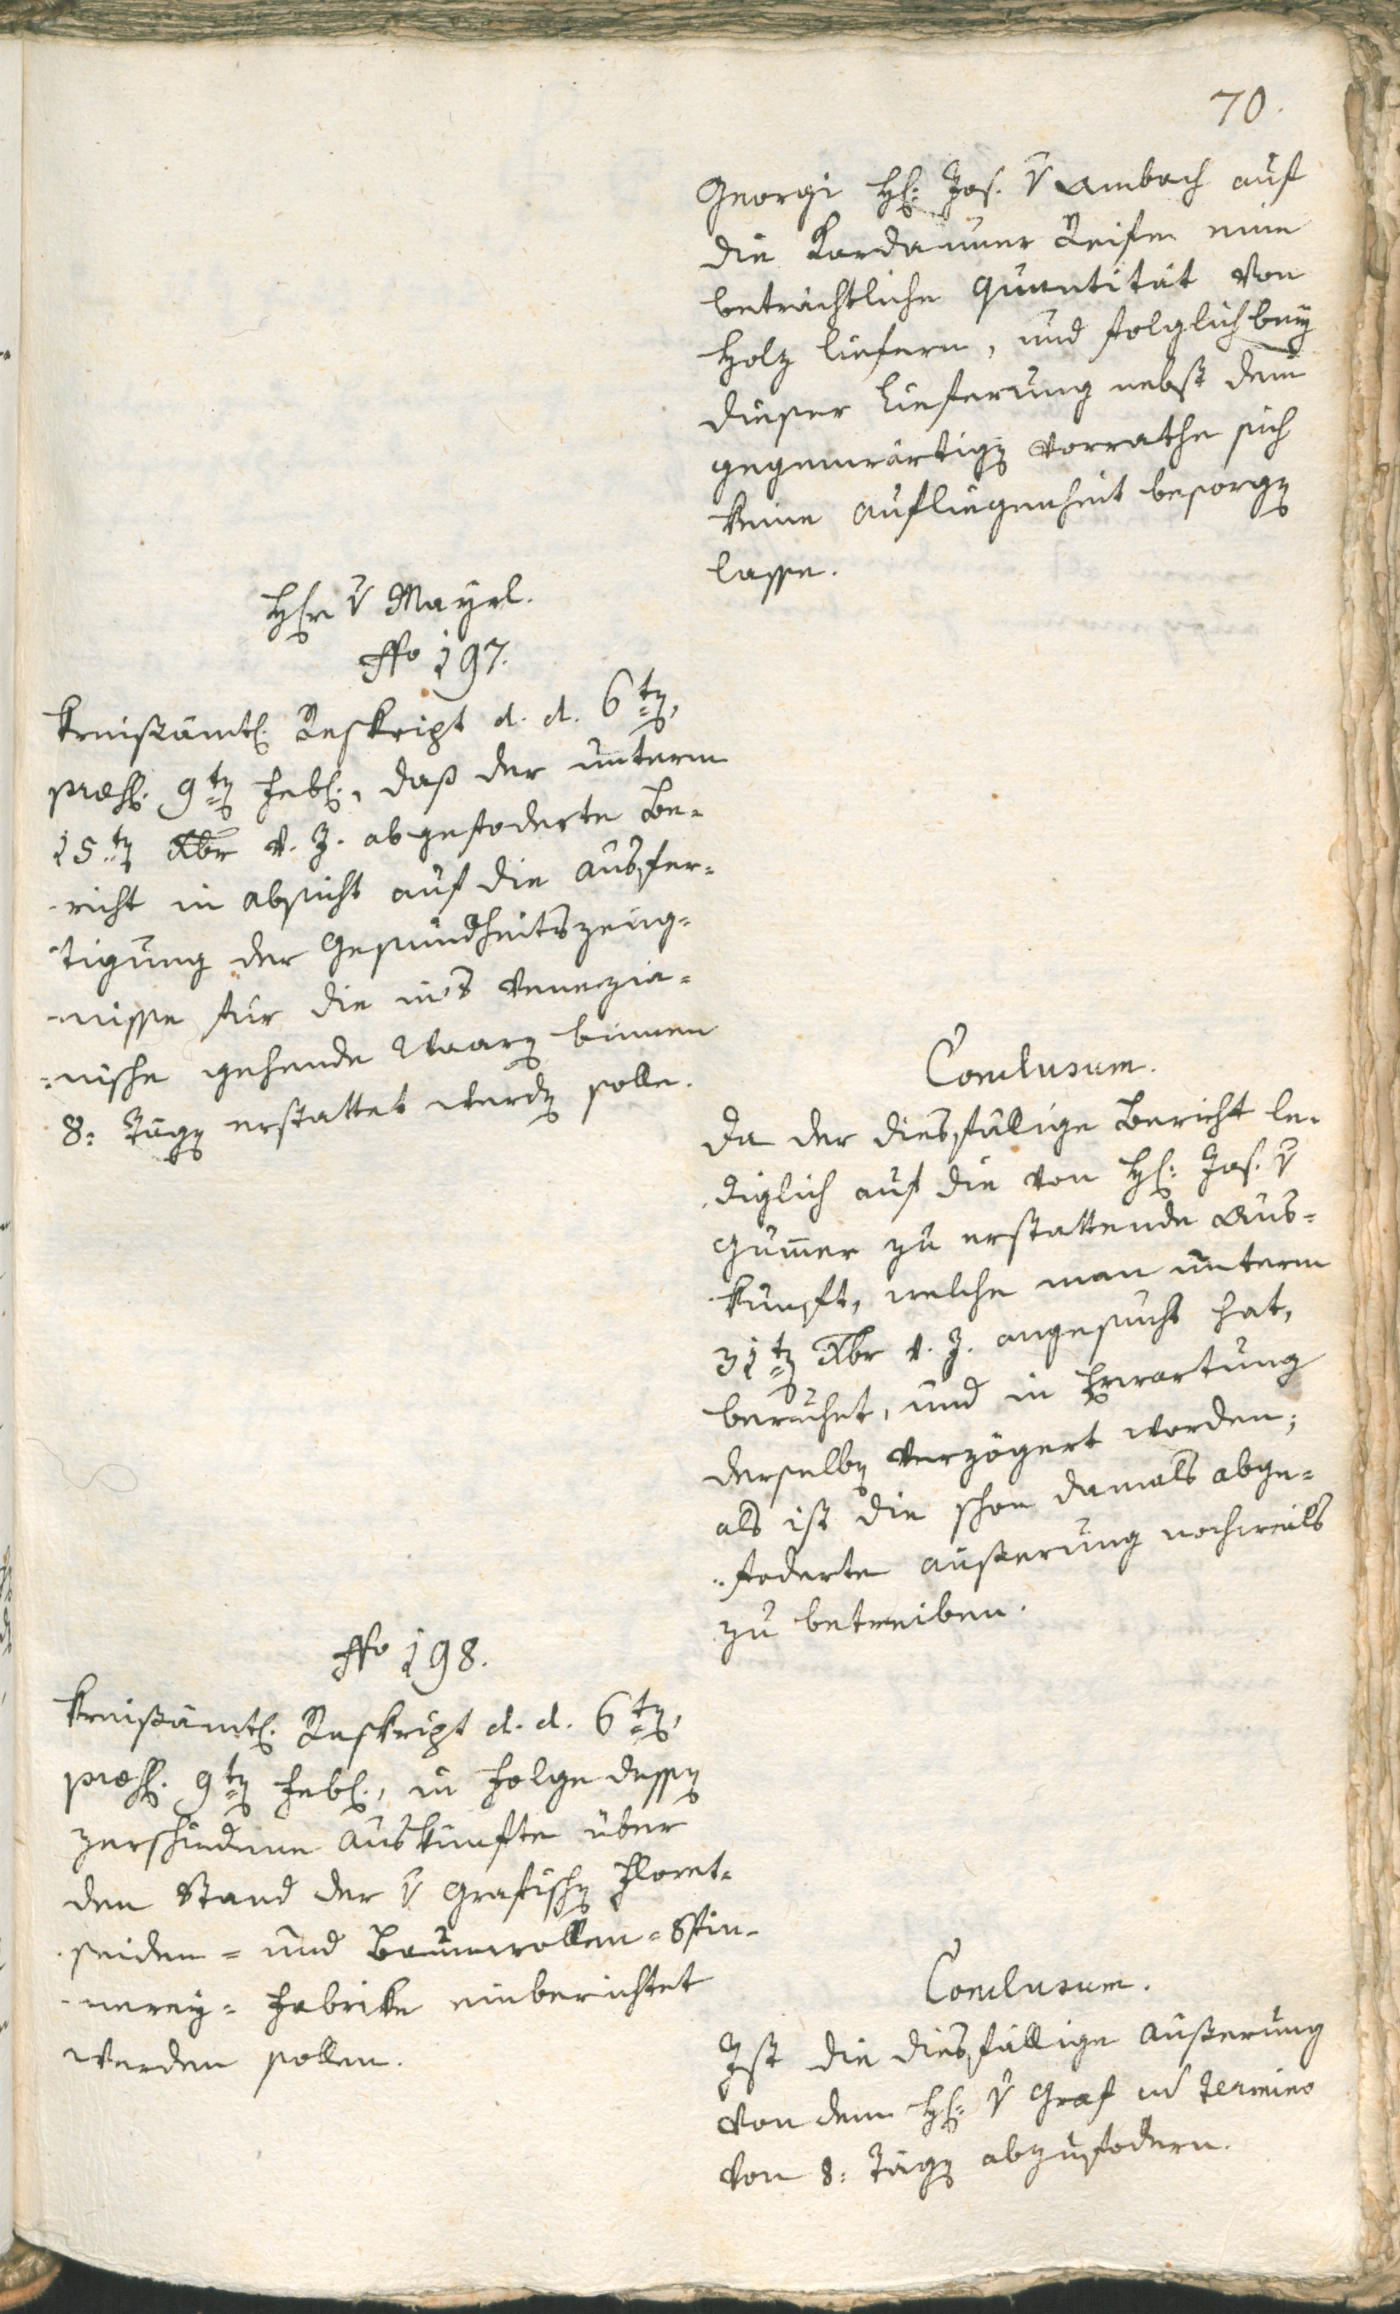 70.
Georgi H: Jos. v Ambach auf
die Kardauner Reifen eine
beträchtliche Quantität von
Holz liefern, und folglich bey
dieser Lieferung nebst dem
gegenwärtigen Vorrathe sich
keine Aufliegenheit besorgen
lasse.
Herr v Mayrl.
No 197.
Kreisämtl. Reskript d. d. 6ten,
præs. 9ten Feb., daß der unterm
15ten Xbr v. J. abgefoderte Be-
-richt in Absicht auf die Ausfer-
-tigung der Gesundheitszeug-
-nisse für die ins Venezia-
-nische gehende Waaren binnen
8: Tägen erstattet werden solle.
Conclusum.
Da der diesfällige Bericht le-
-diglich auf die von H: Jos. v
Gum̄er zu erstattende Aus-
-kunft, welche man unterm
31ten Xbr v. J. angesucht hat,
beruhet, und in Erwartung
derselben verzögert worden;
als ist die schon damals abge-
-foderte Äußerung nochmals
zu betreiben.
No 198.
Kreisämtl. Reskript d. d. 6ten,
præs. 9ten Feb., in Folge dessen
zerschiedene Auskünfte über
den Stand der v Grafischen Floret-
-seiden- und Baumwollen-Spin-
-nerey-Fabrike einberichtet
werden sollen.
Conclusum.
Ist die diesfällige Äußerung
von dem H: v Graf in Termino
von 8: Tägen abzufodern.